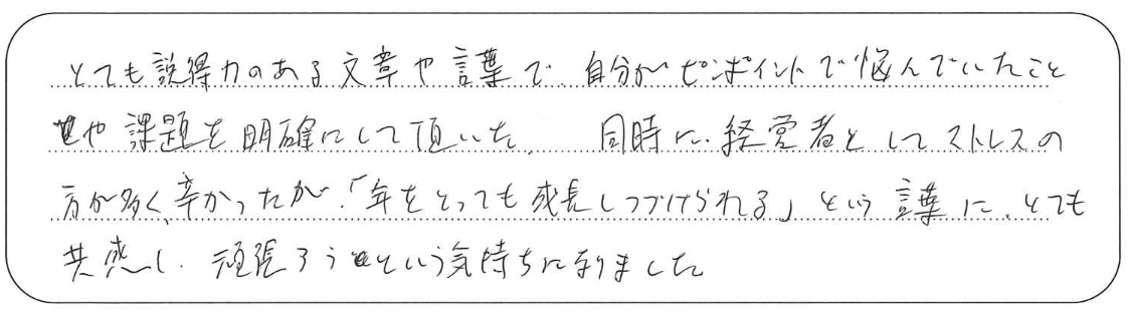 とても説得力のある文章や言葉で、自分がピンポイントで悩んでいたこと
や課題を明確にして頂いた。 同時に、経営者としてストレスの
方が多く、辛かったが、「年をとっても成長しつづけられる」という言葉に、とても
共感し、頑張ろうという気持ちになりました